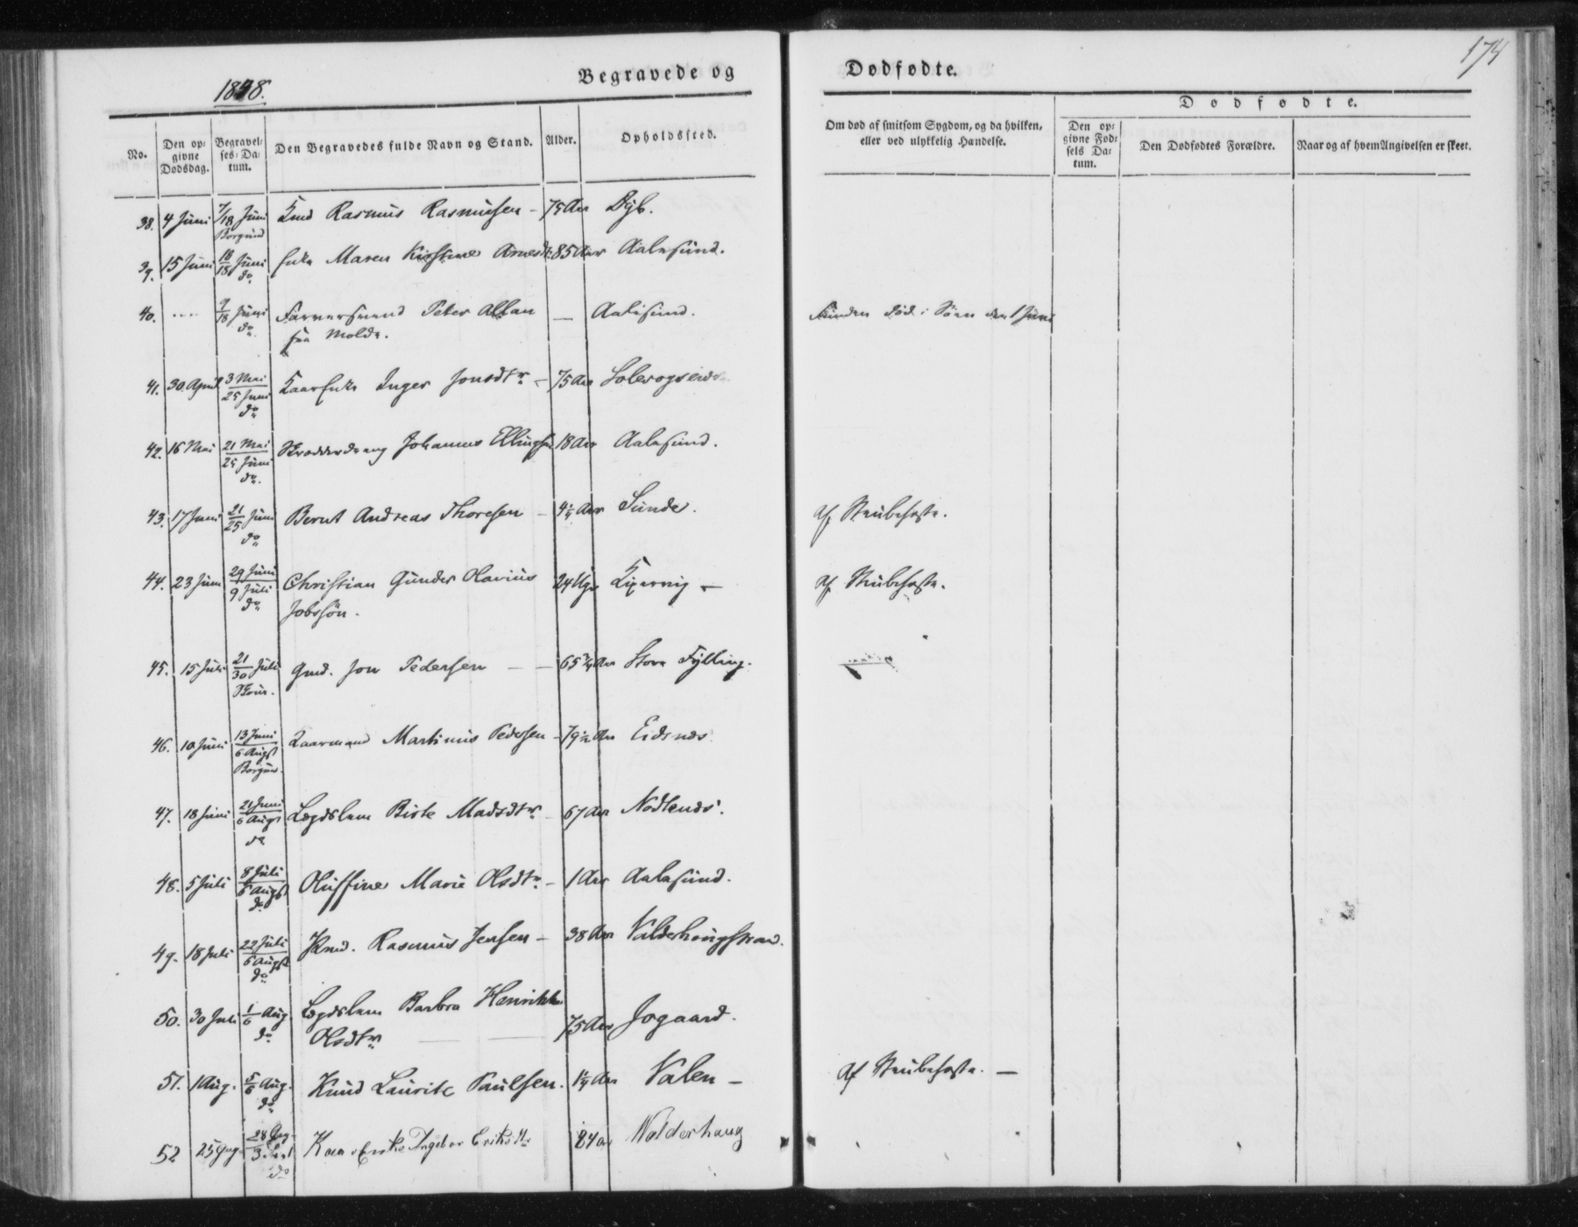 174
1848.
Begravede og
Dødfødte.
No.
Den opgivne Dødsdag.
Begravelses-Datum.
Den Begravedes fulde Navn og Stand.
Alder.
Opholdssted.
Om død af smitsom Sygdom, og da hvilken, eller ved ulykkelig Hændelse.
Dødfødte.
Den opgivne Fødsels Datum.
Den Dødfødtes Forældre.
Naar og af hvem Angivelsen er skeet.
38. 4 Juni 7/18 Juni Borgund Rasmus Rasmusen - 75 Aar
39. 15 Juni 18/18 Juni do Enke Maren Kirstine 85 Aar Aalesund.
40. .... 7/18 Juni do Farversvend Peter Allan — Aalesund. Funden død i Søen den 1 Juni
fra Molde.
41. 30 April 3 Mai/25 Juni do Kaarenke Inger Jonsdtr - 75 Aar
42. 16 Mai 21 Mai/25 Juni do Johannes Ellingsen 18 Aar Aalesund.
43. 17 Juni 21/25 Juni do Bernt Andreas Thoresen - Aar Sunde. af Strubehoste.
44. 23 Juni 29 Juni/9 Juli do Christian Gunder Olavius 24 Uger af Strubehoste.
Jobssøn.
45. 15 Juli 21/30 Juli Gmd. Jon Pedersen — 65 Aar Store Fylling.
46. 10 Juni 13 Juni/6 Augst Borgund Kaarmand Martinus Pedersen - Aar Eidsnes
47. 18 Juni 21 Juni/6 Augst do Lægdslem Madsdtr 67 Aar
48. 5 Juli 8 Juli/6 Augst do Oluffine Marie Olsdtr - 1 Aar Aalesund.
49. 18 Juli 22 Juli/6 Augst do Rasmus Jensen - 38 Aar Valderhaugstrand.
50. 30 Juli 1/6 Aug. do Lægdslem Barbro
Olsdtr — 75 Aar Jogaard.
51. 1 Aug. 5/6 Aug. do Knud Lauritz Paulsen. Aar Valen - Af Strubehoste. —
52 25 Aug 28 Aug/3 Sept do Enke Ingebor Eriksdtr 84 a Valderhaug